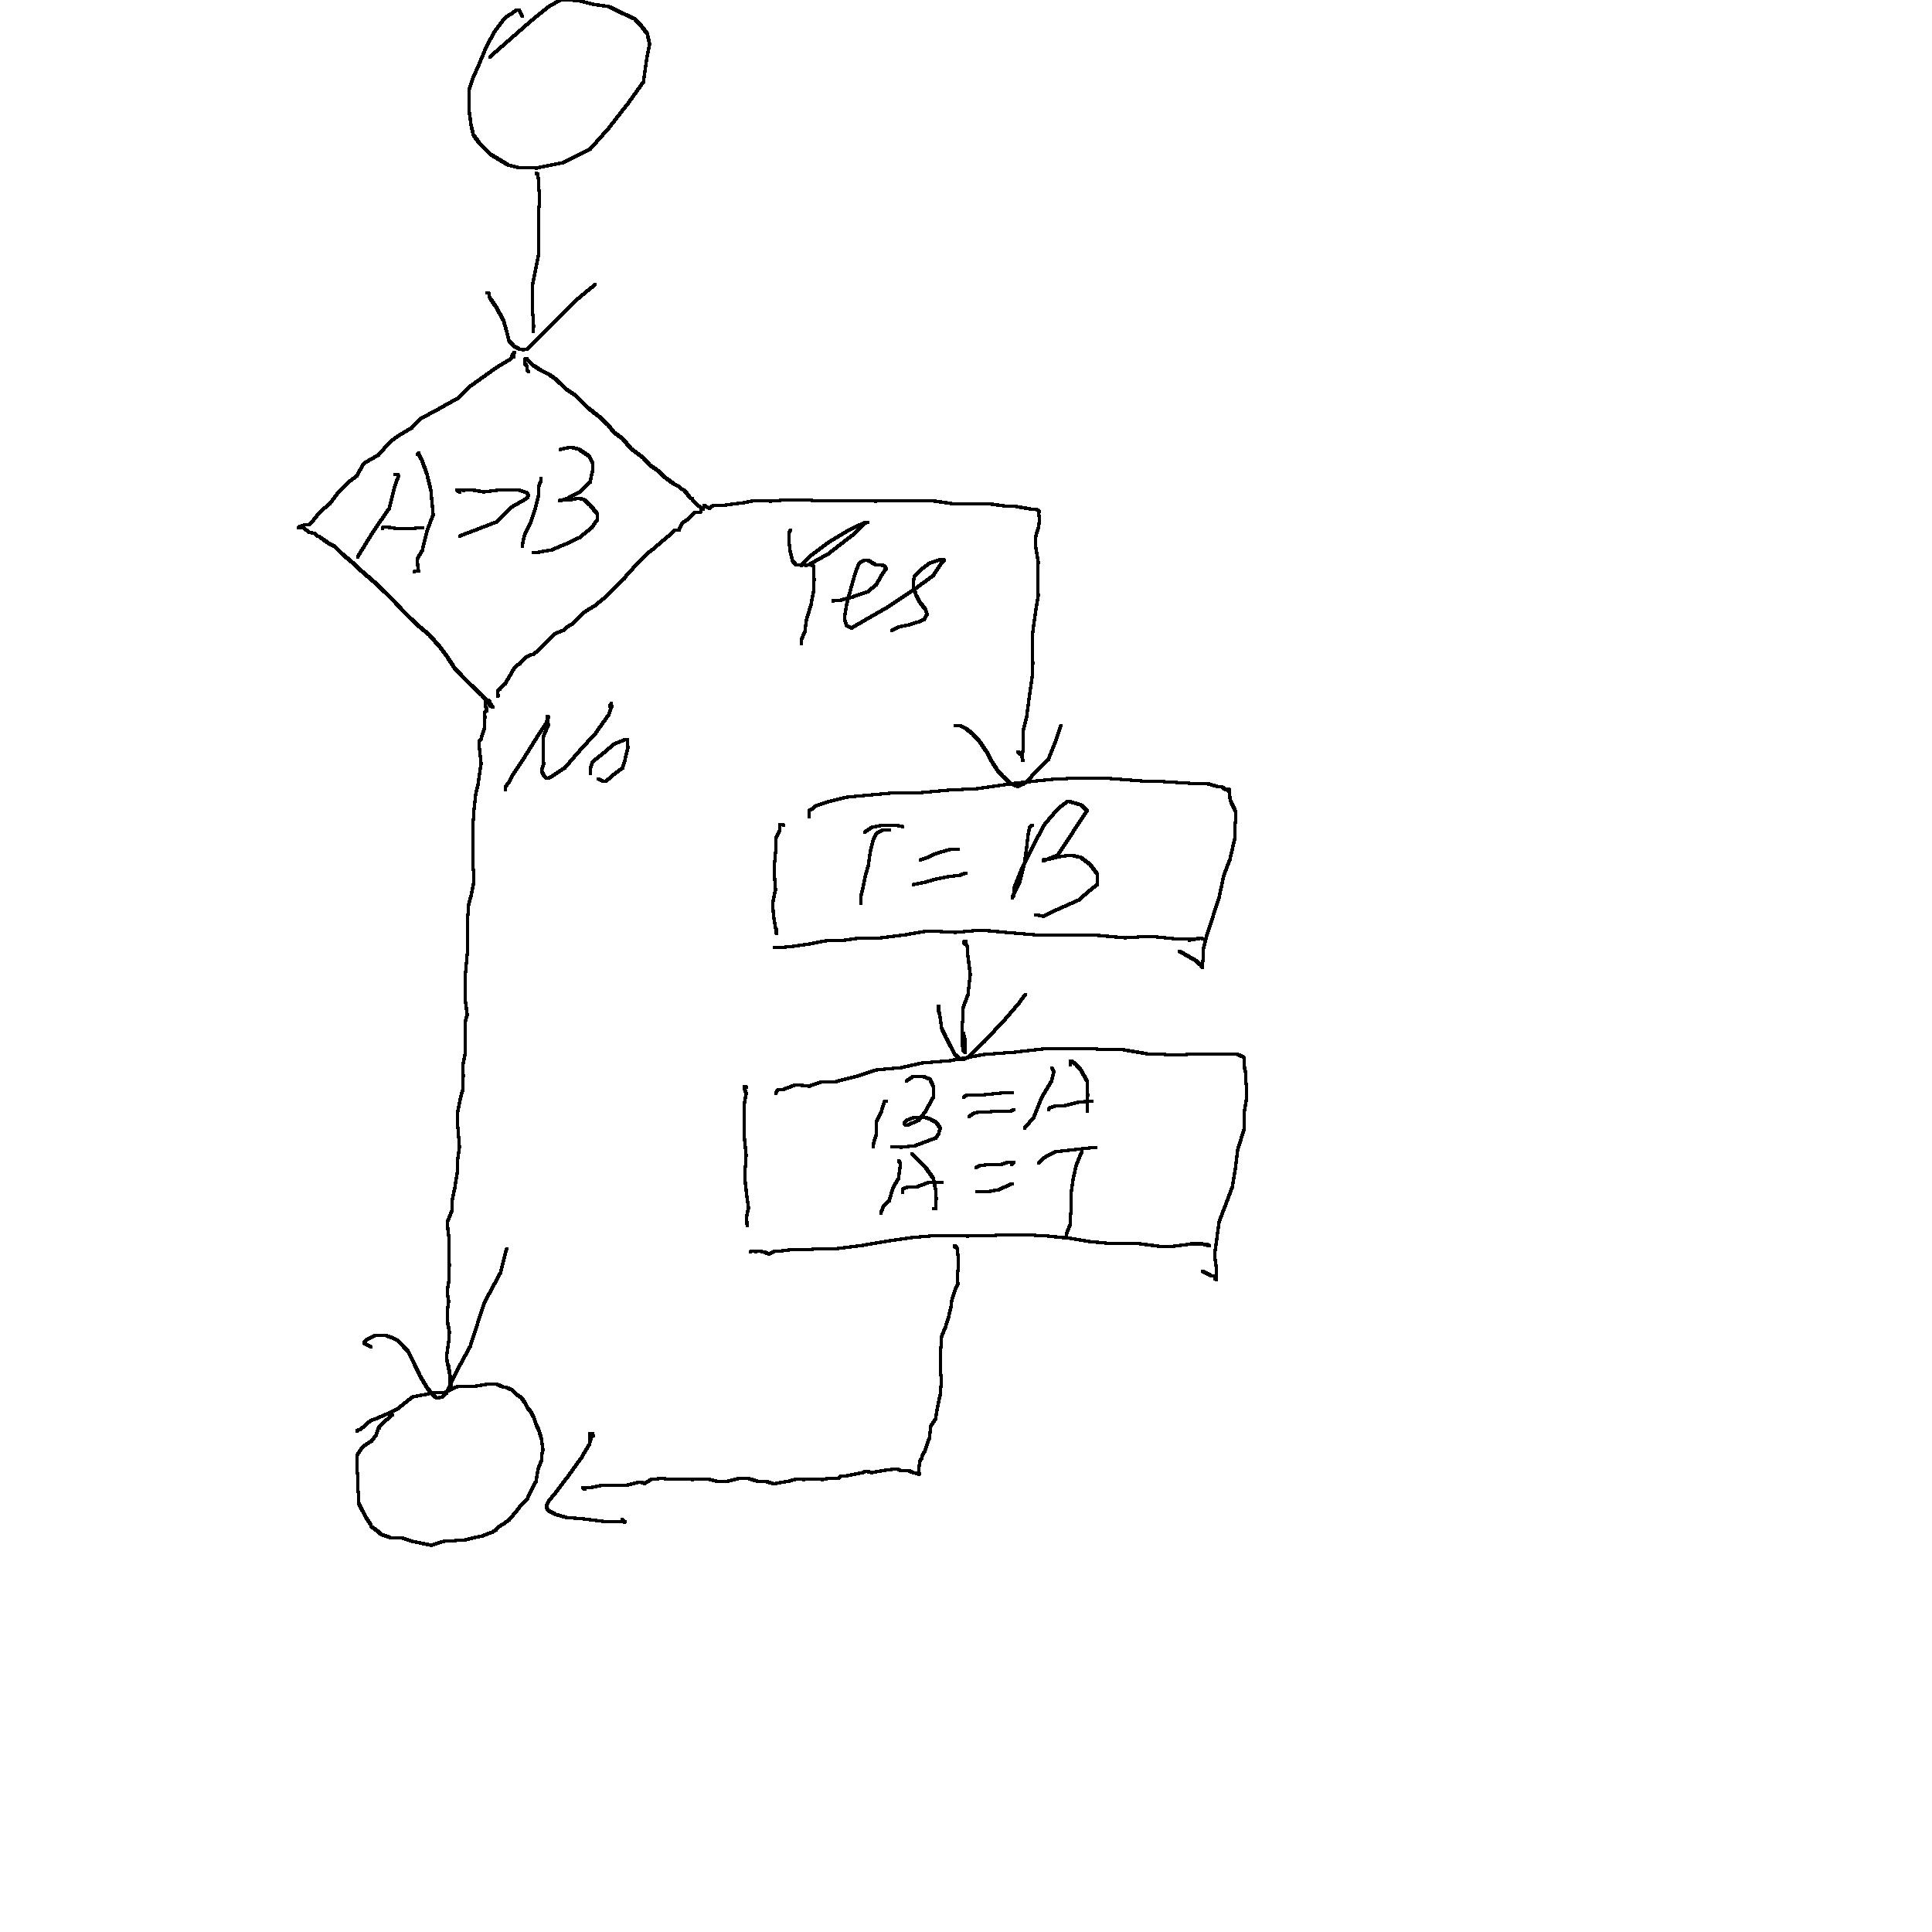 A>B
Yes
No
T = B
B = A
A = T